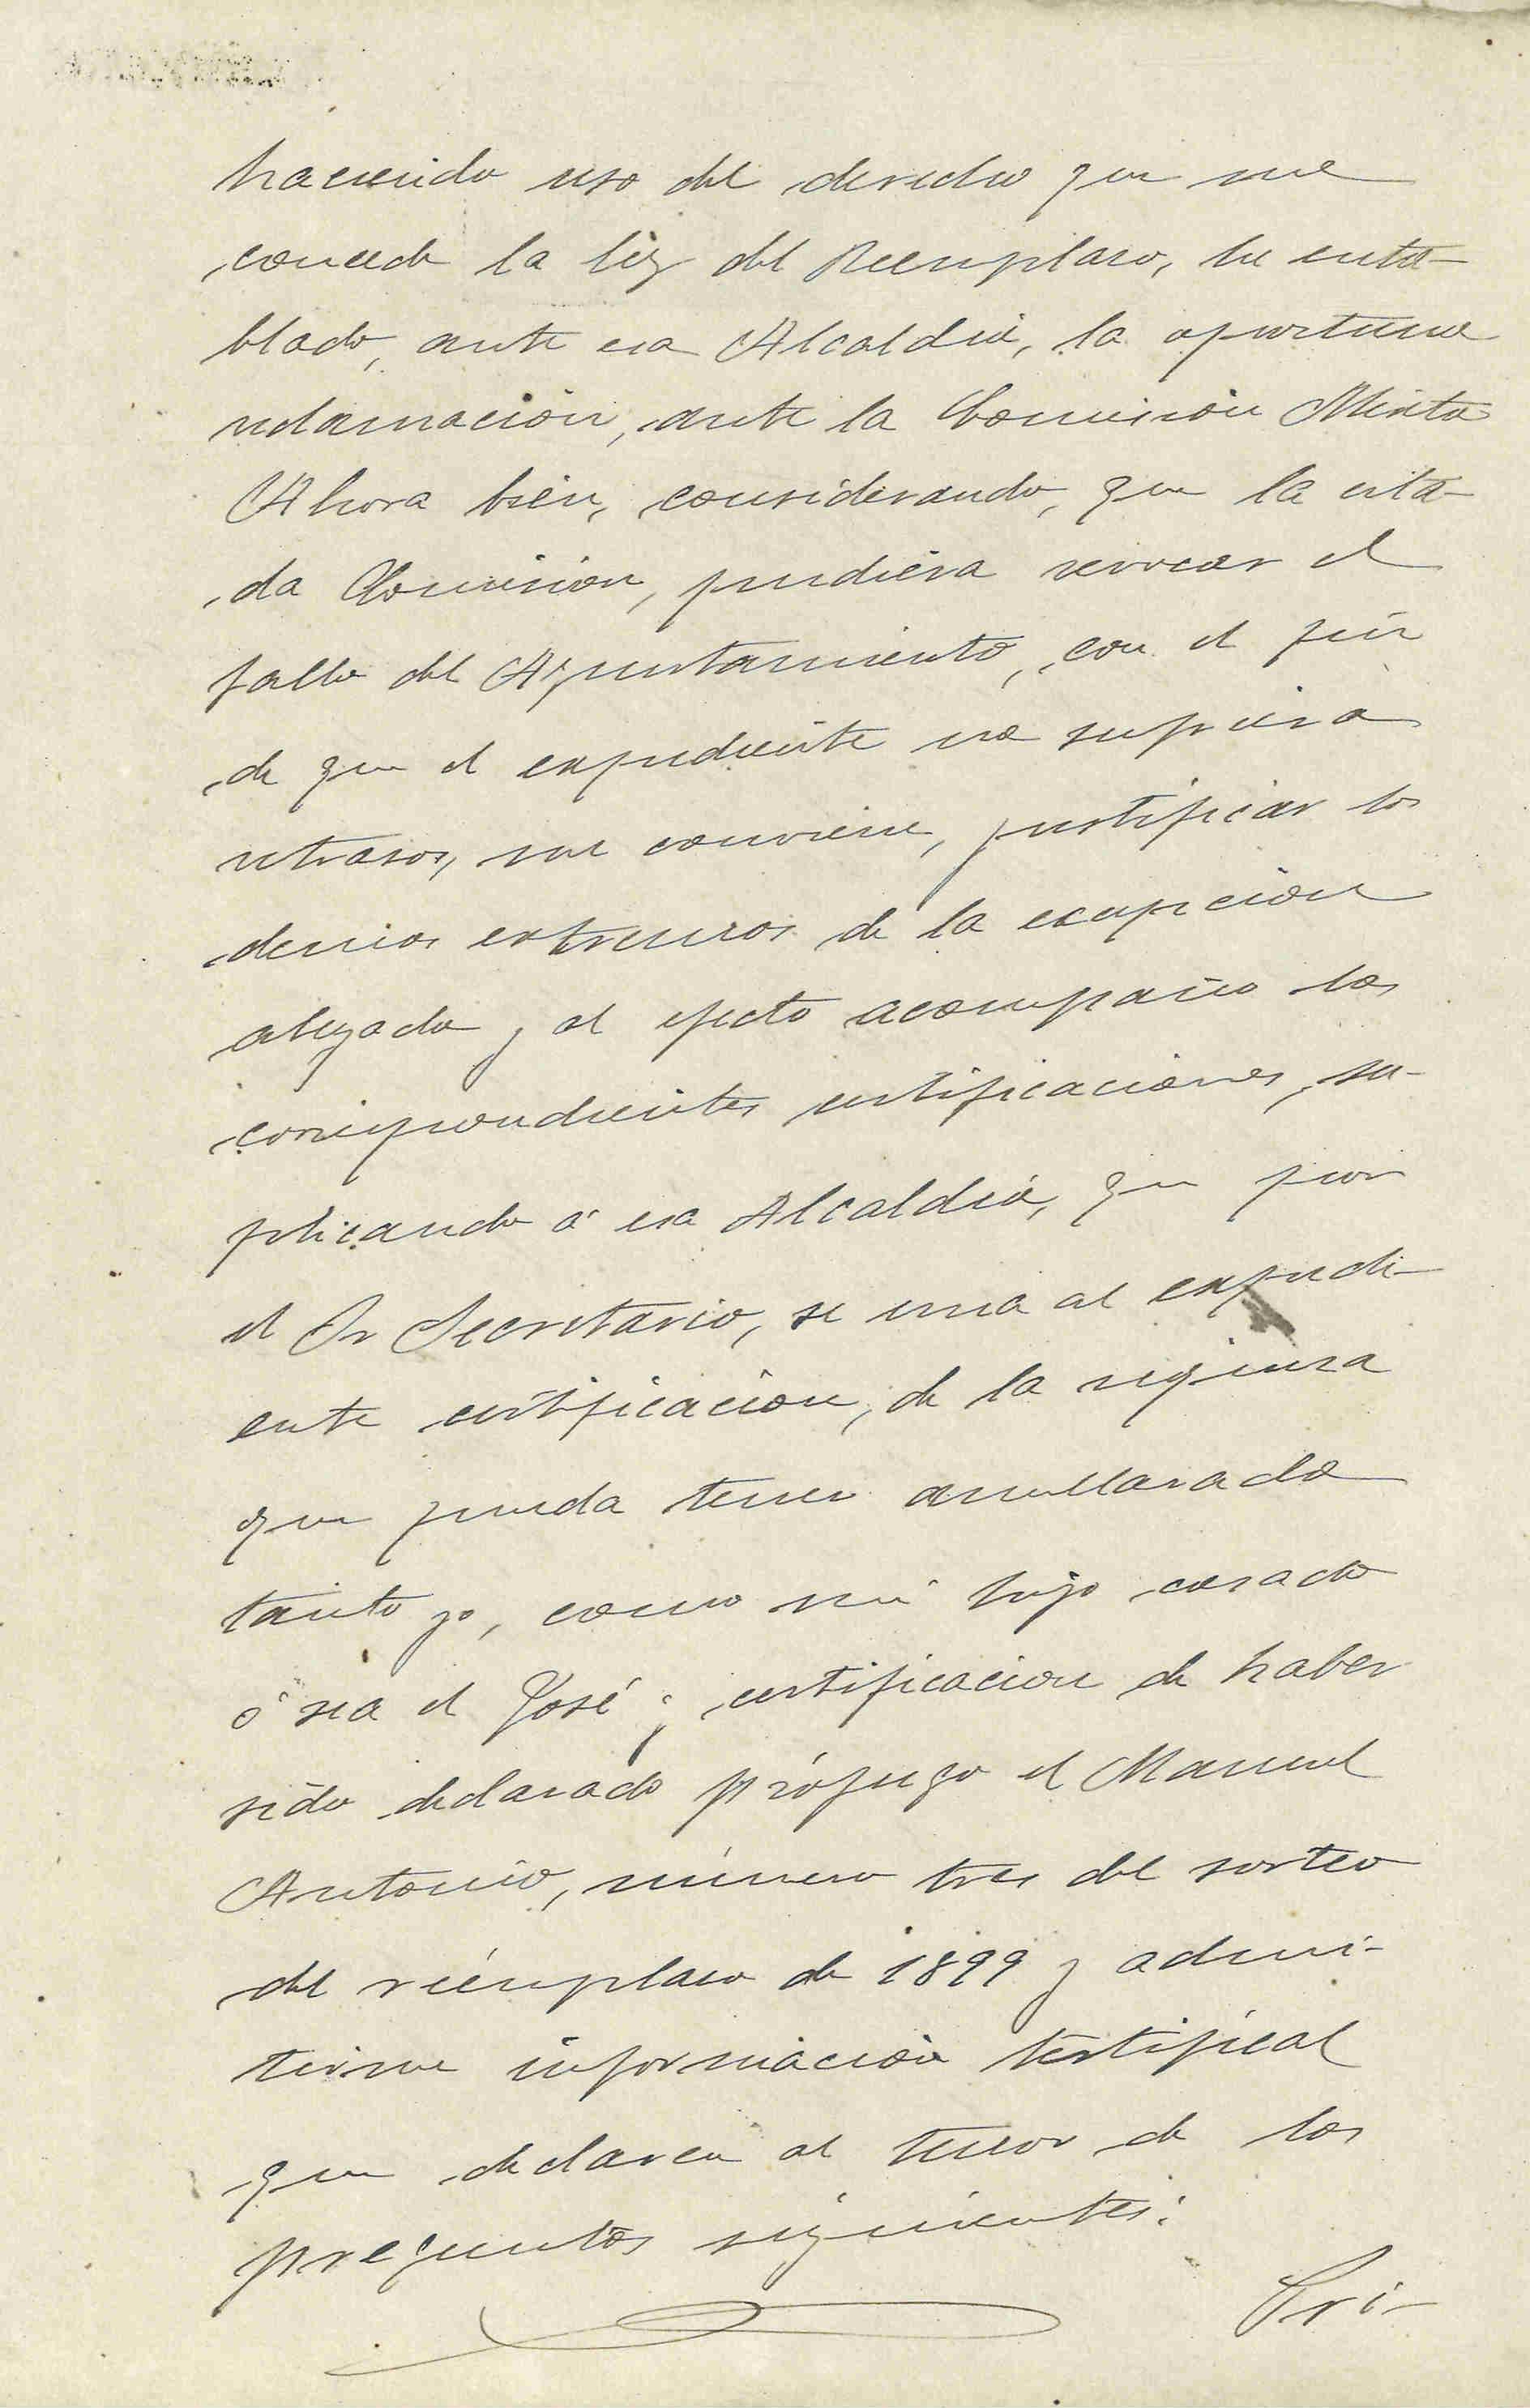 haciendo uso del derecho que me
concede la ley del Reemplazo, he enta-
blado, ante esa Alcaldía, la oportuna
reclamación, ante la Comisión Mixta
Ahora bien, considerando, que la cita-
da Comisión, pudiera revocar el
fallo del Ayuntamiento, con el fin
de que el expediente no sufriera
retrasos, me conviene, justificar los
demás extremos de la excepción
alegada y al efecto acompaño las
correspondientes certificaciones, su-
plicando á esa Alcaldía, que por
el Sr Secretario, se una al expedi-
ente certificación, de la riqueza
que pueda tener amillarada
tanto yo, como mi hijo casado
ó sea el José; certificación de haber
sido declarado prófugo el Manuel
Antonio, número tres del sorteo
del reemplazo de 1899 y admi-
tirme información testifical
que declaren al tenor de las
preguntas siguientes:
Pri-